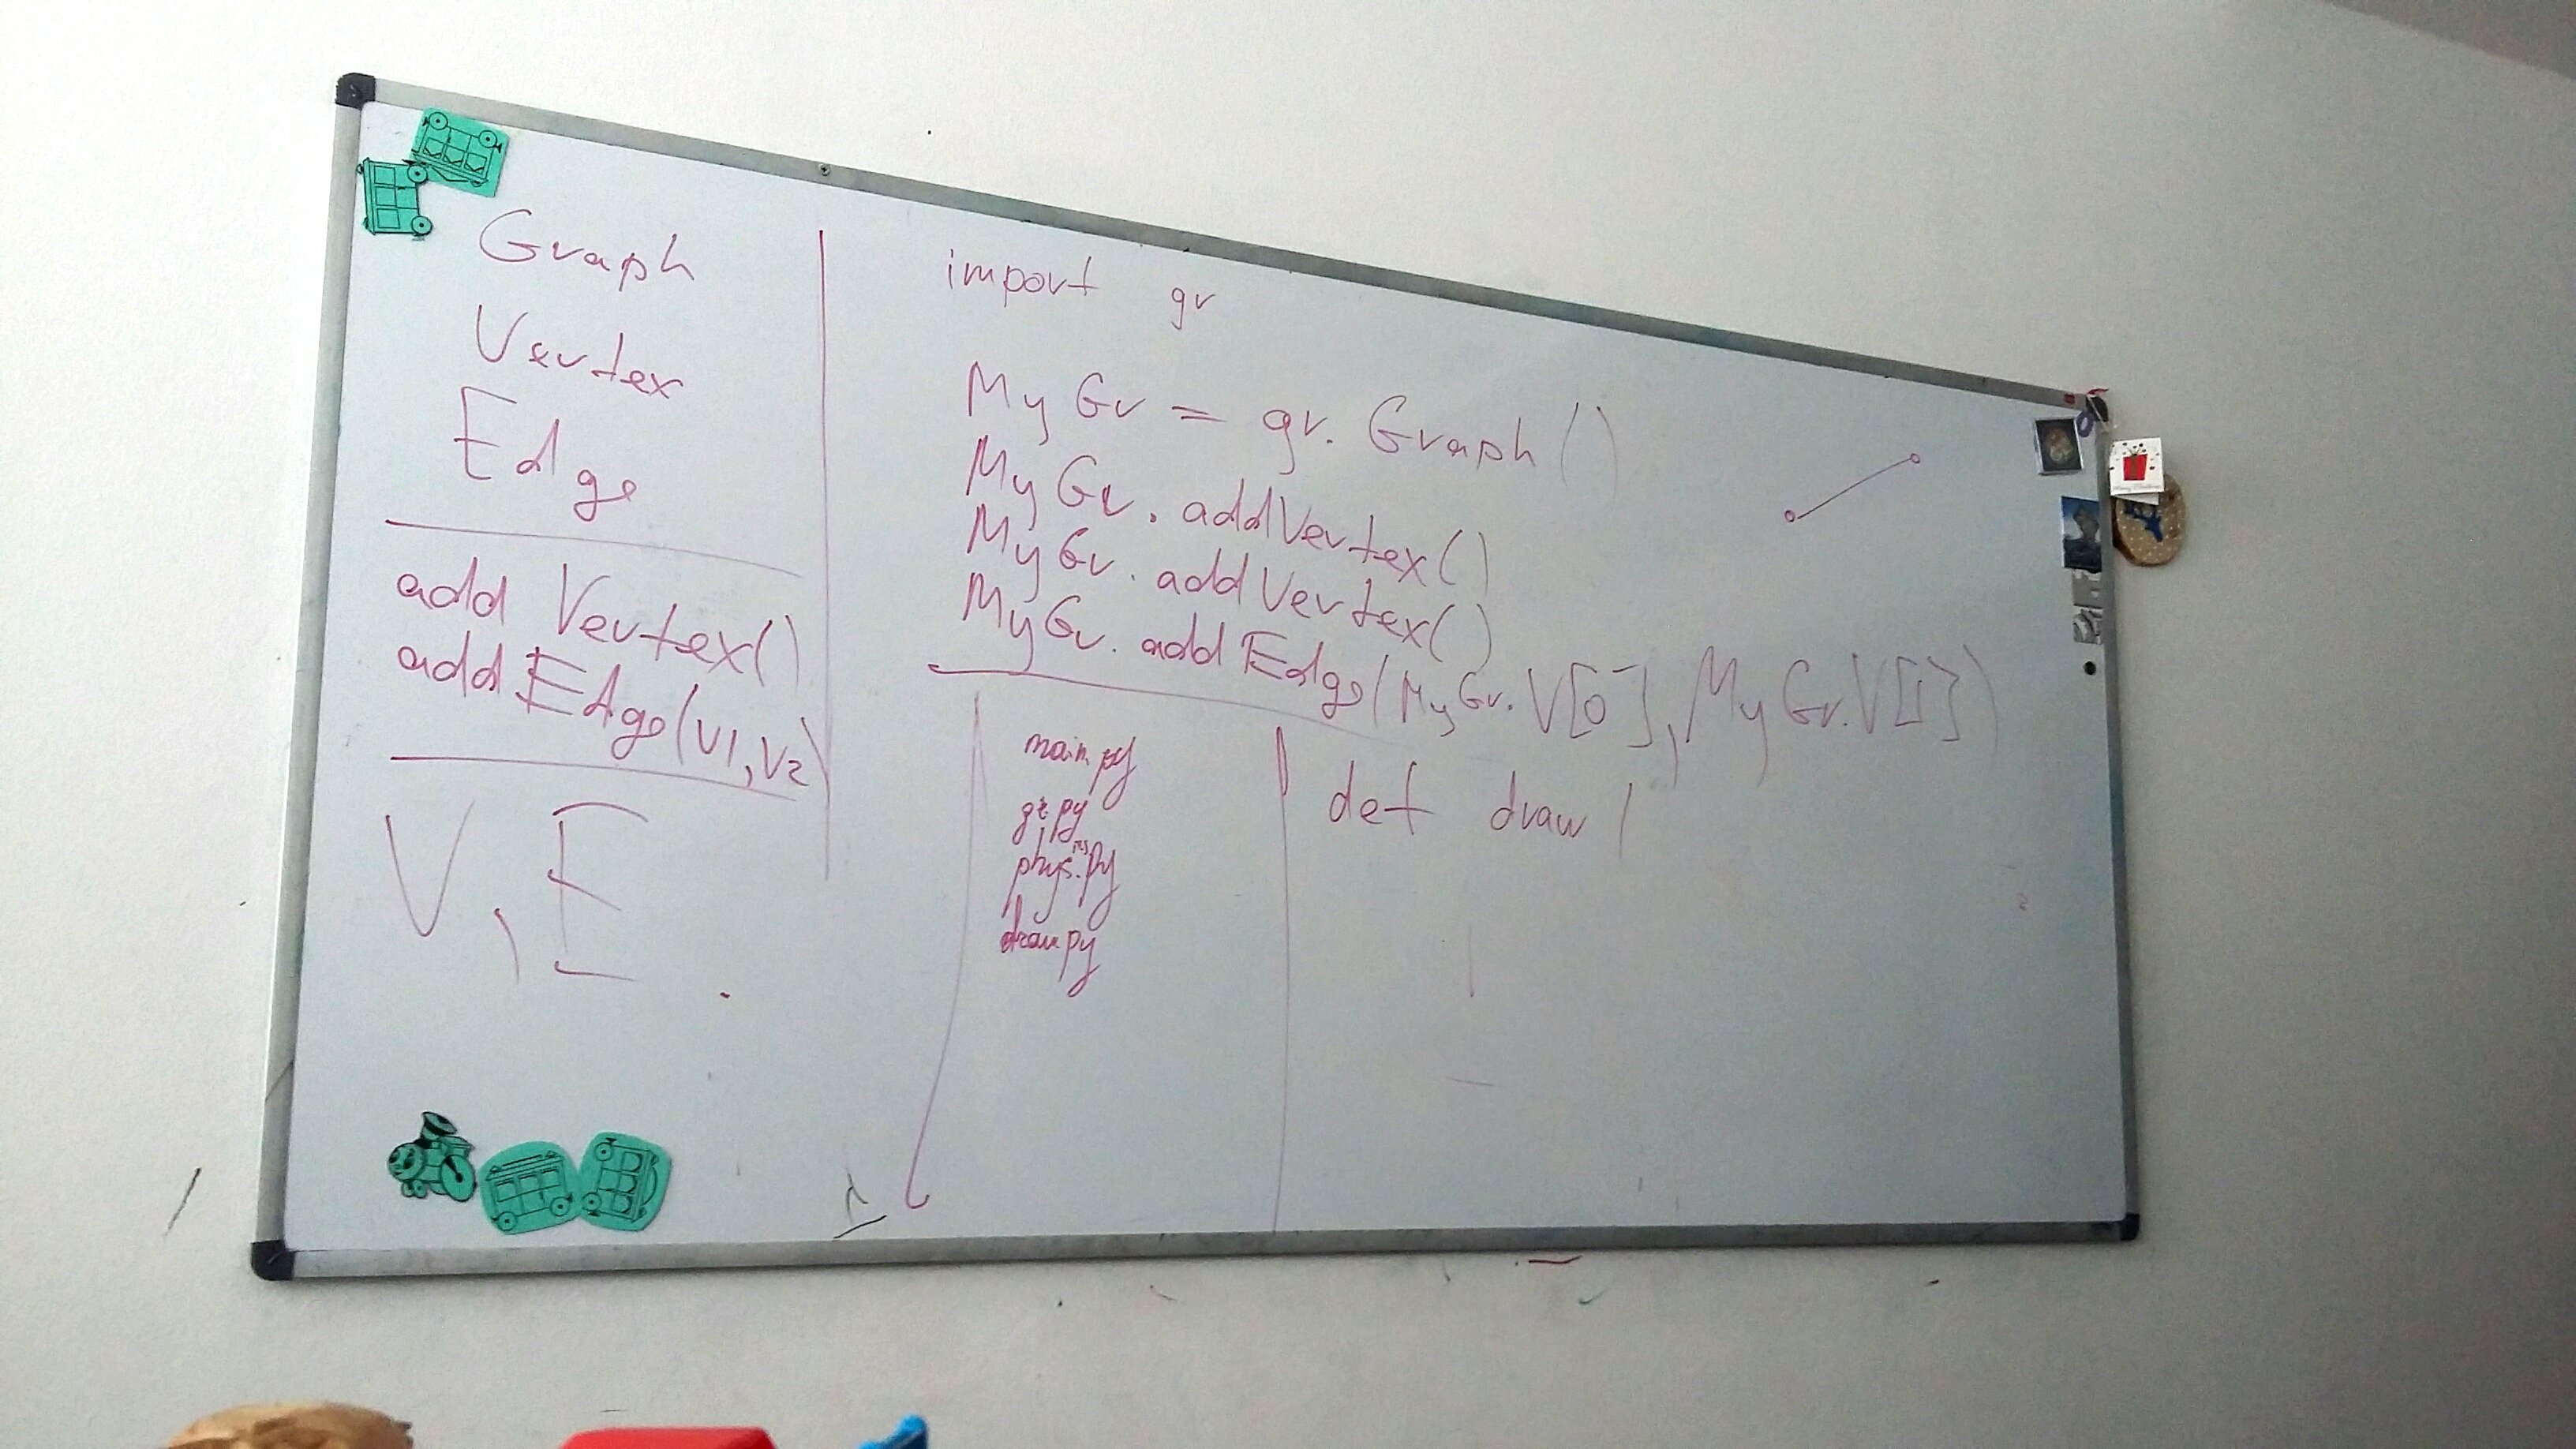 Graph
Vertex
Edge
add Vertex()
add Edge(v1,v2)
V, E
import gr
MyGr = gr. Graph()
MyGr. addVertex()
MyGr. addVertex()
MyGr. addEdge(MyGr.V[0], MyGr.V[1])
main.py
gr.py
draw.py
def draw(